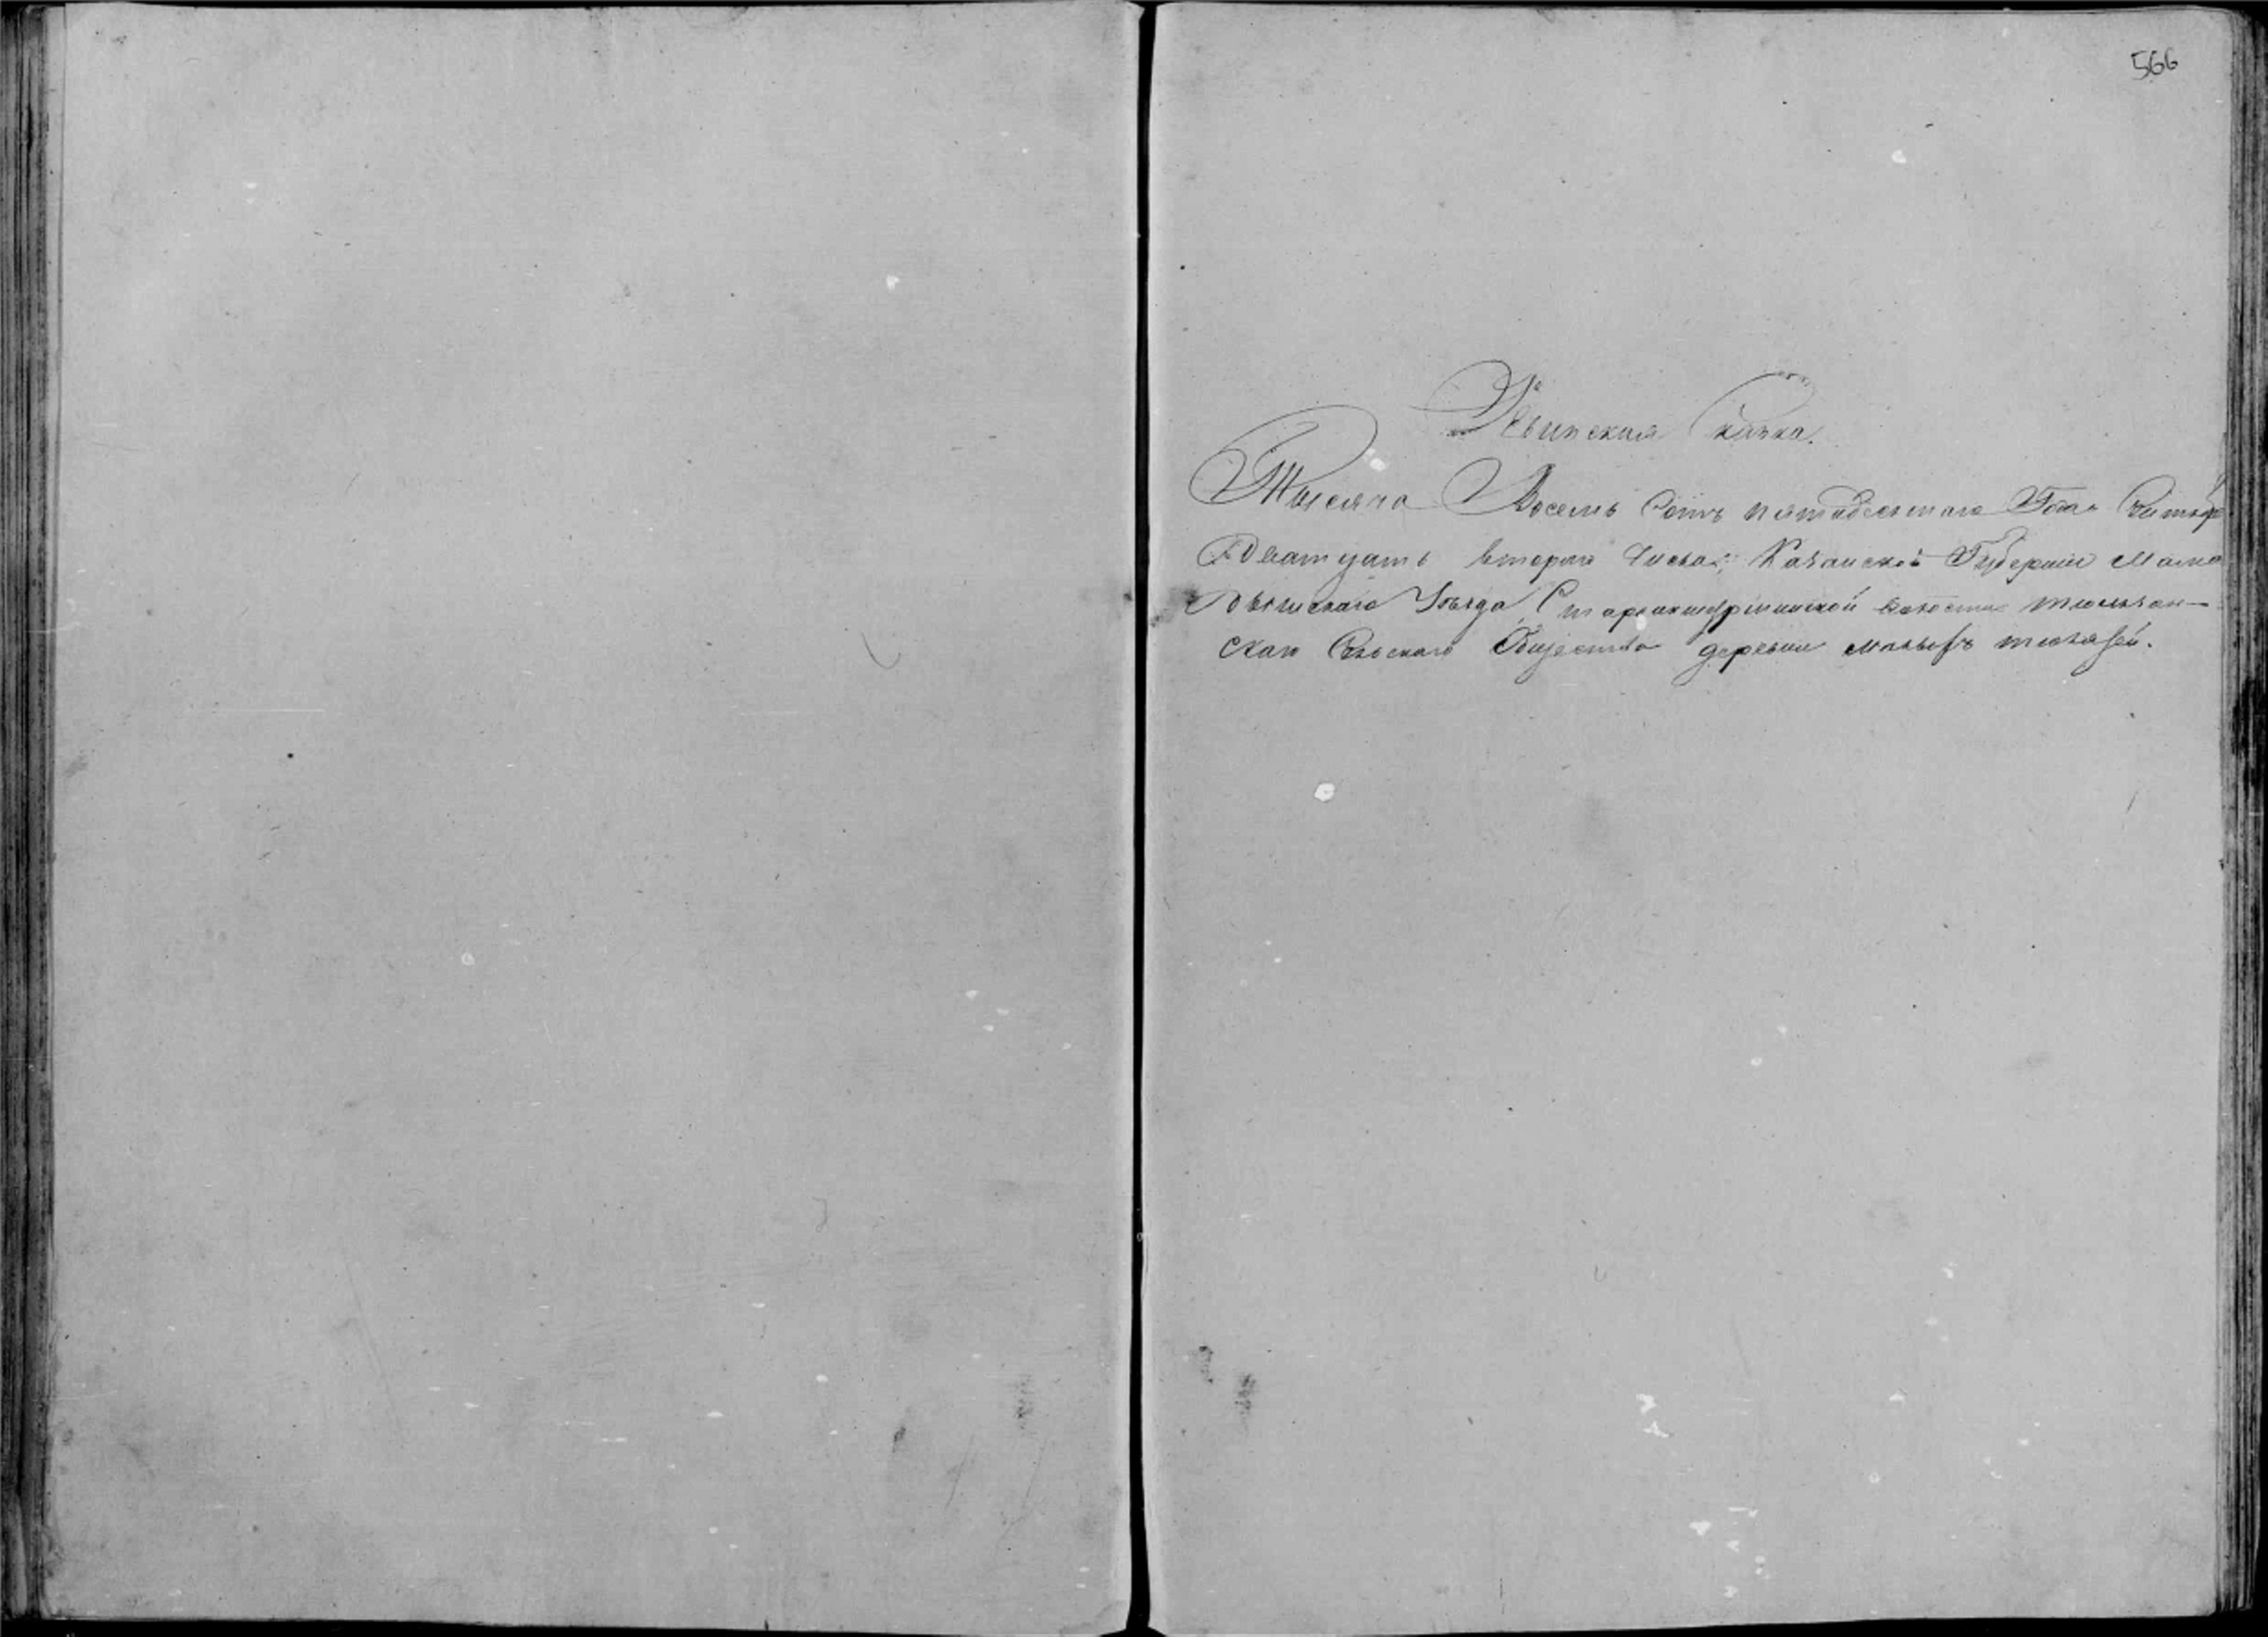 566
Ревизская Сказка.
Тысяча Восемь Сотъ пятидесятаго Года Октября
дватцать втораго Числа, Казанской Губернии Мама
дышскаго Уезда, волости тюлязан-
скаго Сельскаго Общества деревни Малыхъ тюлязей.